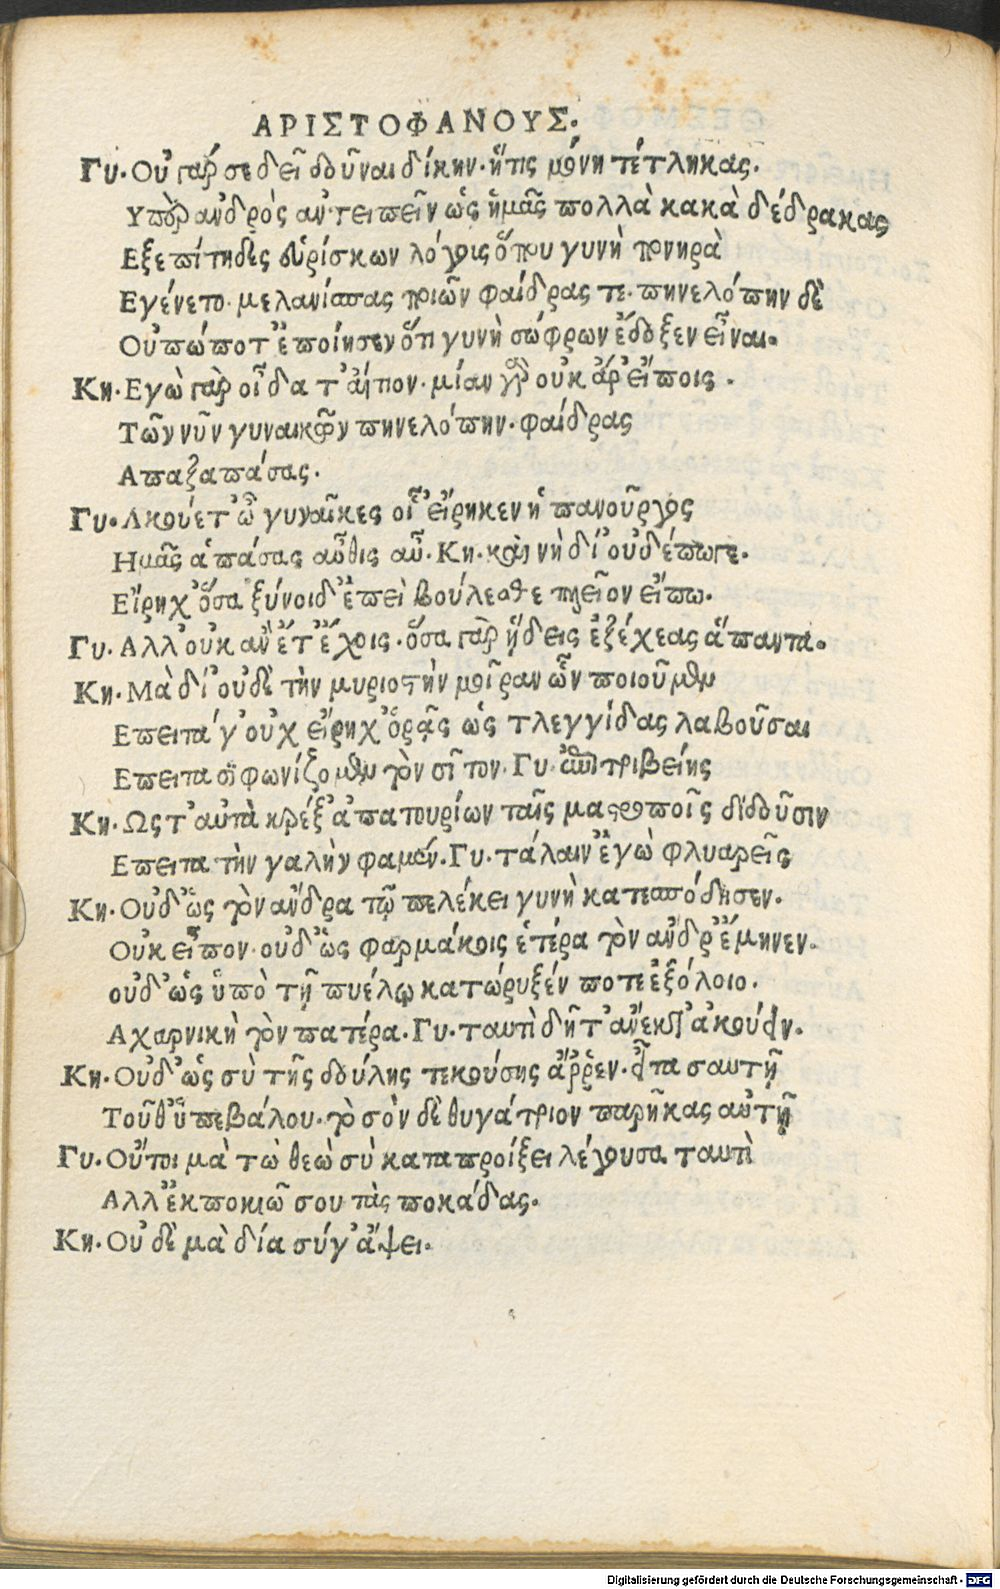 ΑΡΙΣΤΟΦΑΝΟΥΣ.
Γυ. Οὐ γάρ σε δεῖ δοῦναι δίκην. ἥτις μόνη τέτληκας.
Υπὲρ ἀνδρὸς ἀντειπεῖν ὡς ἡμᾶς πολλὰ κακὰ δέδρακας
Εξεπίτηδες εὑρίσκων λόγοις ὅπου γυνὴ πονηρὰ
Εγένετο. μελανίππας ποιῶν φαίδρας τε. πηνελόπην δὲ
Οὐπώποτ' ἐποίησεν ὅτι γυνὴ σώφρων ἔδοξεν εἶναι.
Κη. Εγὼ γὰρ οἶδα τ' αἴτιον. μίαν γὰρ οὐκ ἂρ εἴποις.
Τῶν νῦν γυναικῶν πηνελόπην. φαίδρας
Απαξαπάσας.
Γυ. Ακούετ' ὦ γυναῖκες οἷ' εἴρηκεν ἡ πανοῦργος
Ημᾶς ἁπάσας αὖθις αὖ. Κη. καὶ νὴ δί' οὐδέπωγε.
Εἴρηχ' ὅσα ξύνοιδ' ἐπεὶ βούλεσθε πλεῖον εἴπω.
Γυ. Αλλ' οὐκ ἂν ἔτ' ἔχοις. ὅσα γὰρ ᾔδεις ἐξέχεας ἅπαντα.
Κη. Μὰ δί' οὐδὲ τὴν μυριοτὴν μοῖραν ὧν ποιοῦμεν
Επειτα γ' οὐχ εἴρηχ' ὁρᾷς ὡς τλεγγίδας λαβοῦσαι
Επειτα σιφωνίζομεν τὸν σῖτον. Γυ. ἐπιτριβείης
Κη. Ως τ' αὐτὰ κρέξ' ἀπατουρίων ταῖς μαστροποῖς διδοῦσιν
Επειτα τὴν γαλήν φαμεν. Γυ. τάλαιν' ἐγὼ φλυαρεῖς
Κη. Οὐδ' ὡς τὸν ἄνδρα τῷ πελέκει γυνὴ κατεσπόδησεν.
Οὐκ εἶπον. οὐδ' ὡς φαρμάκοις ἑτέρα τὸν ἄνδρ' ἔμηνεν.
οὐδ' ὡς ὑπὸ τῇ πυέλῳ κατώρυξέν ποτε ἐξόλοιο.
Αχαρνικὴ τὸν πατέρα. Γυ. ταυτὶ δῆτ' ἀνέκτ' ἀκούειν.
Κη. Οὐδ' ὡς σὺ τῆς δούλης τεκούσης ἄῤῥεν. εἶτα σαυτῇ
Τοῦθ' ὑπεβάλου. τὸ σὸν δὲ θυγάτριον παρῆκας αὐτῇ
Γυ. Οὔτοι μὰ τὼ θεὼ σὺ καταπροίξει λέγουσα ταυτὶ
Αλλ' ἐκποκιῶ σου τὰς ποκάδας.
Κη. Οὐ δὲ μὰ δία σύγ' ἅψει.
Digitalisierung gefördert durch die Deutsche Forschungsgemeinschaft - DFG